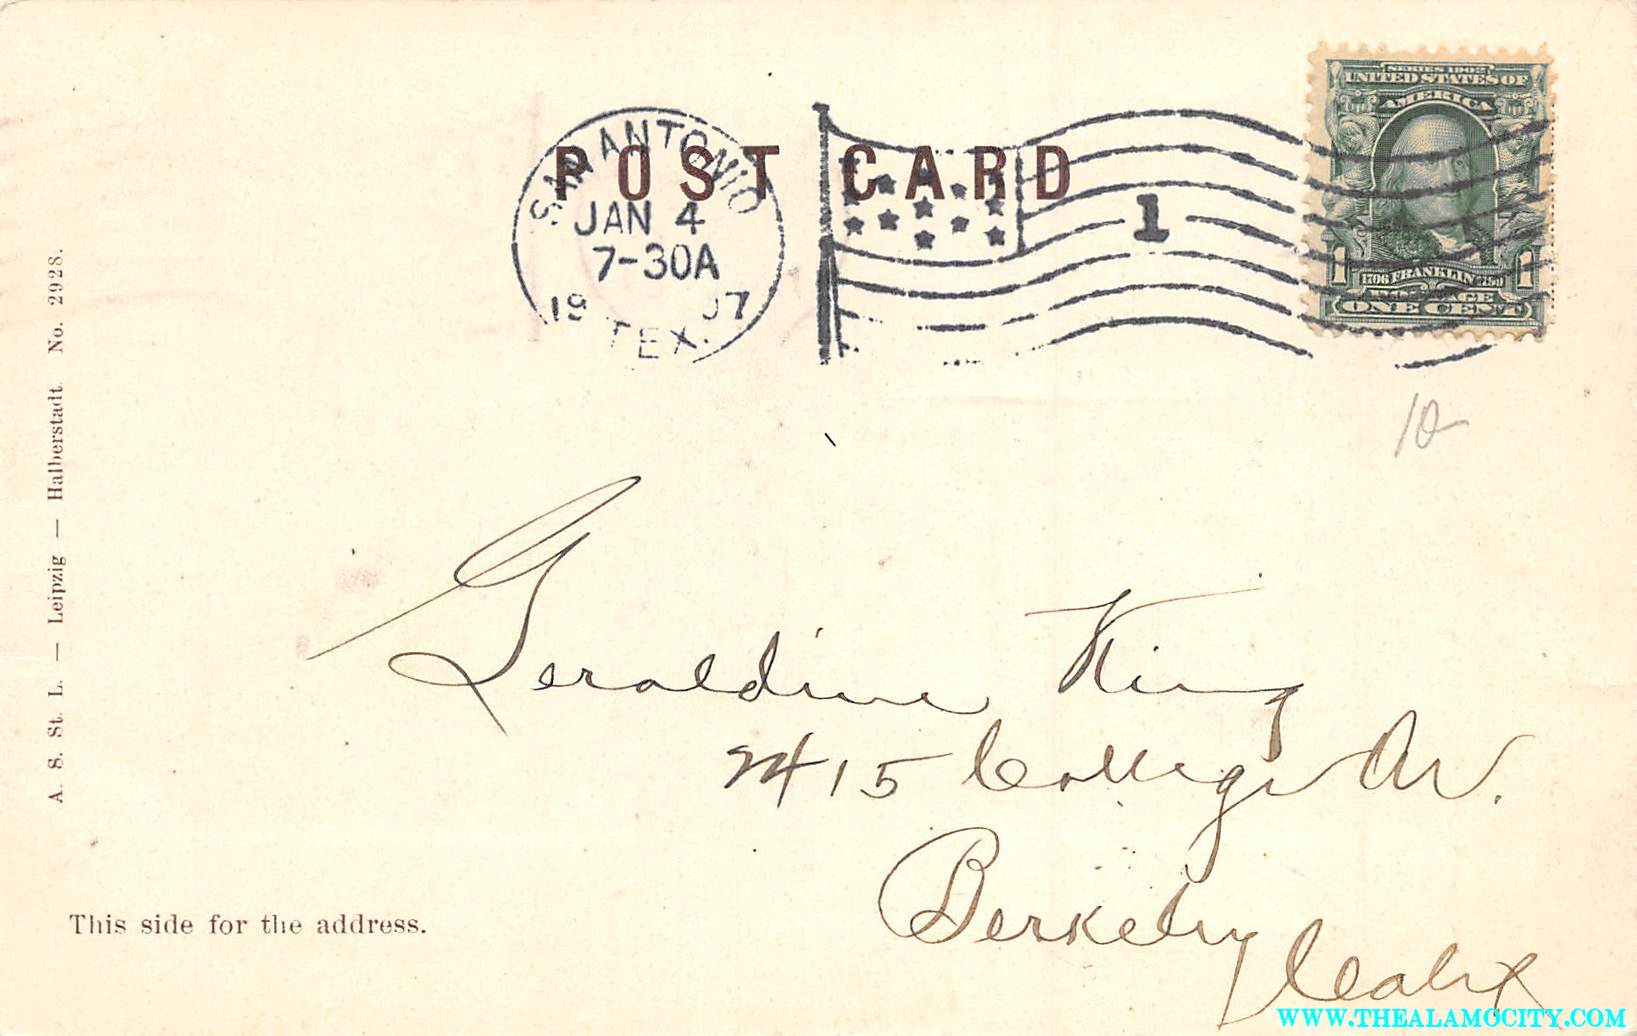 POST CARD
SAN ANTONIO
JAN 4
7-30A
19 07
TEX.
1
SERIES 1902
UNITED STATES OF
AMERICA
1706 FRANKLIN 1790
POSTAGE
1 1
ONE CENT
10
Geraldine King
2415 College Av.
Berkeley
Calif
This side for the address.
A. S. St. L. — Leipzig — Halberstadt. No. 2928.
WWW.THEALAMOCITY.COM